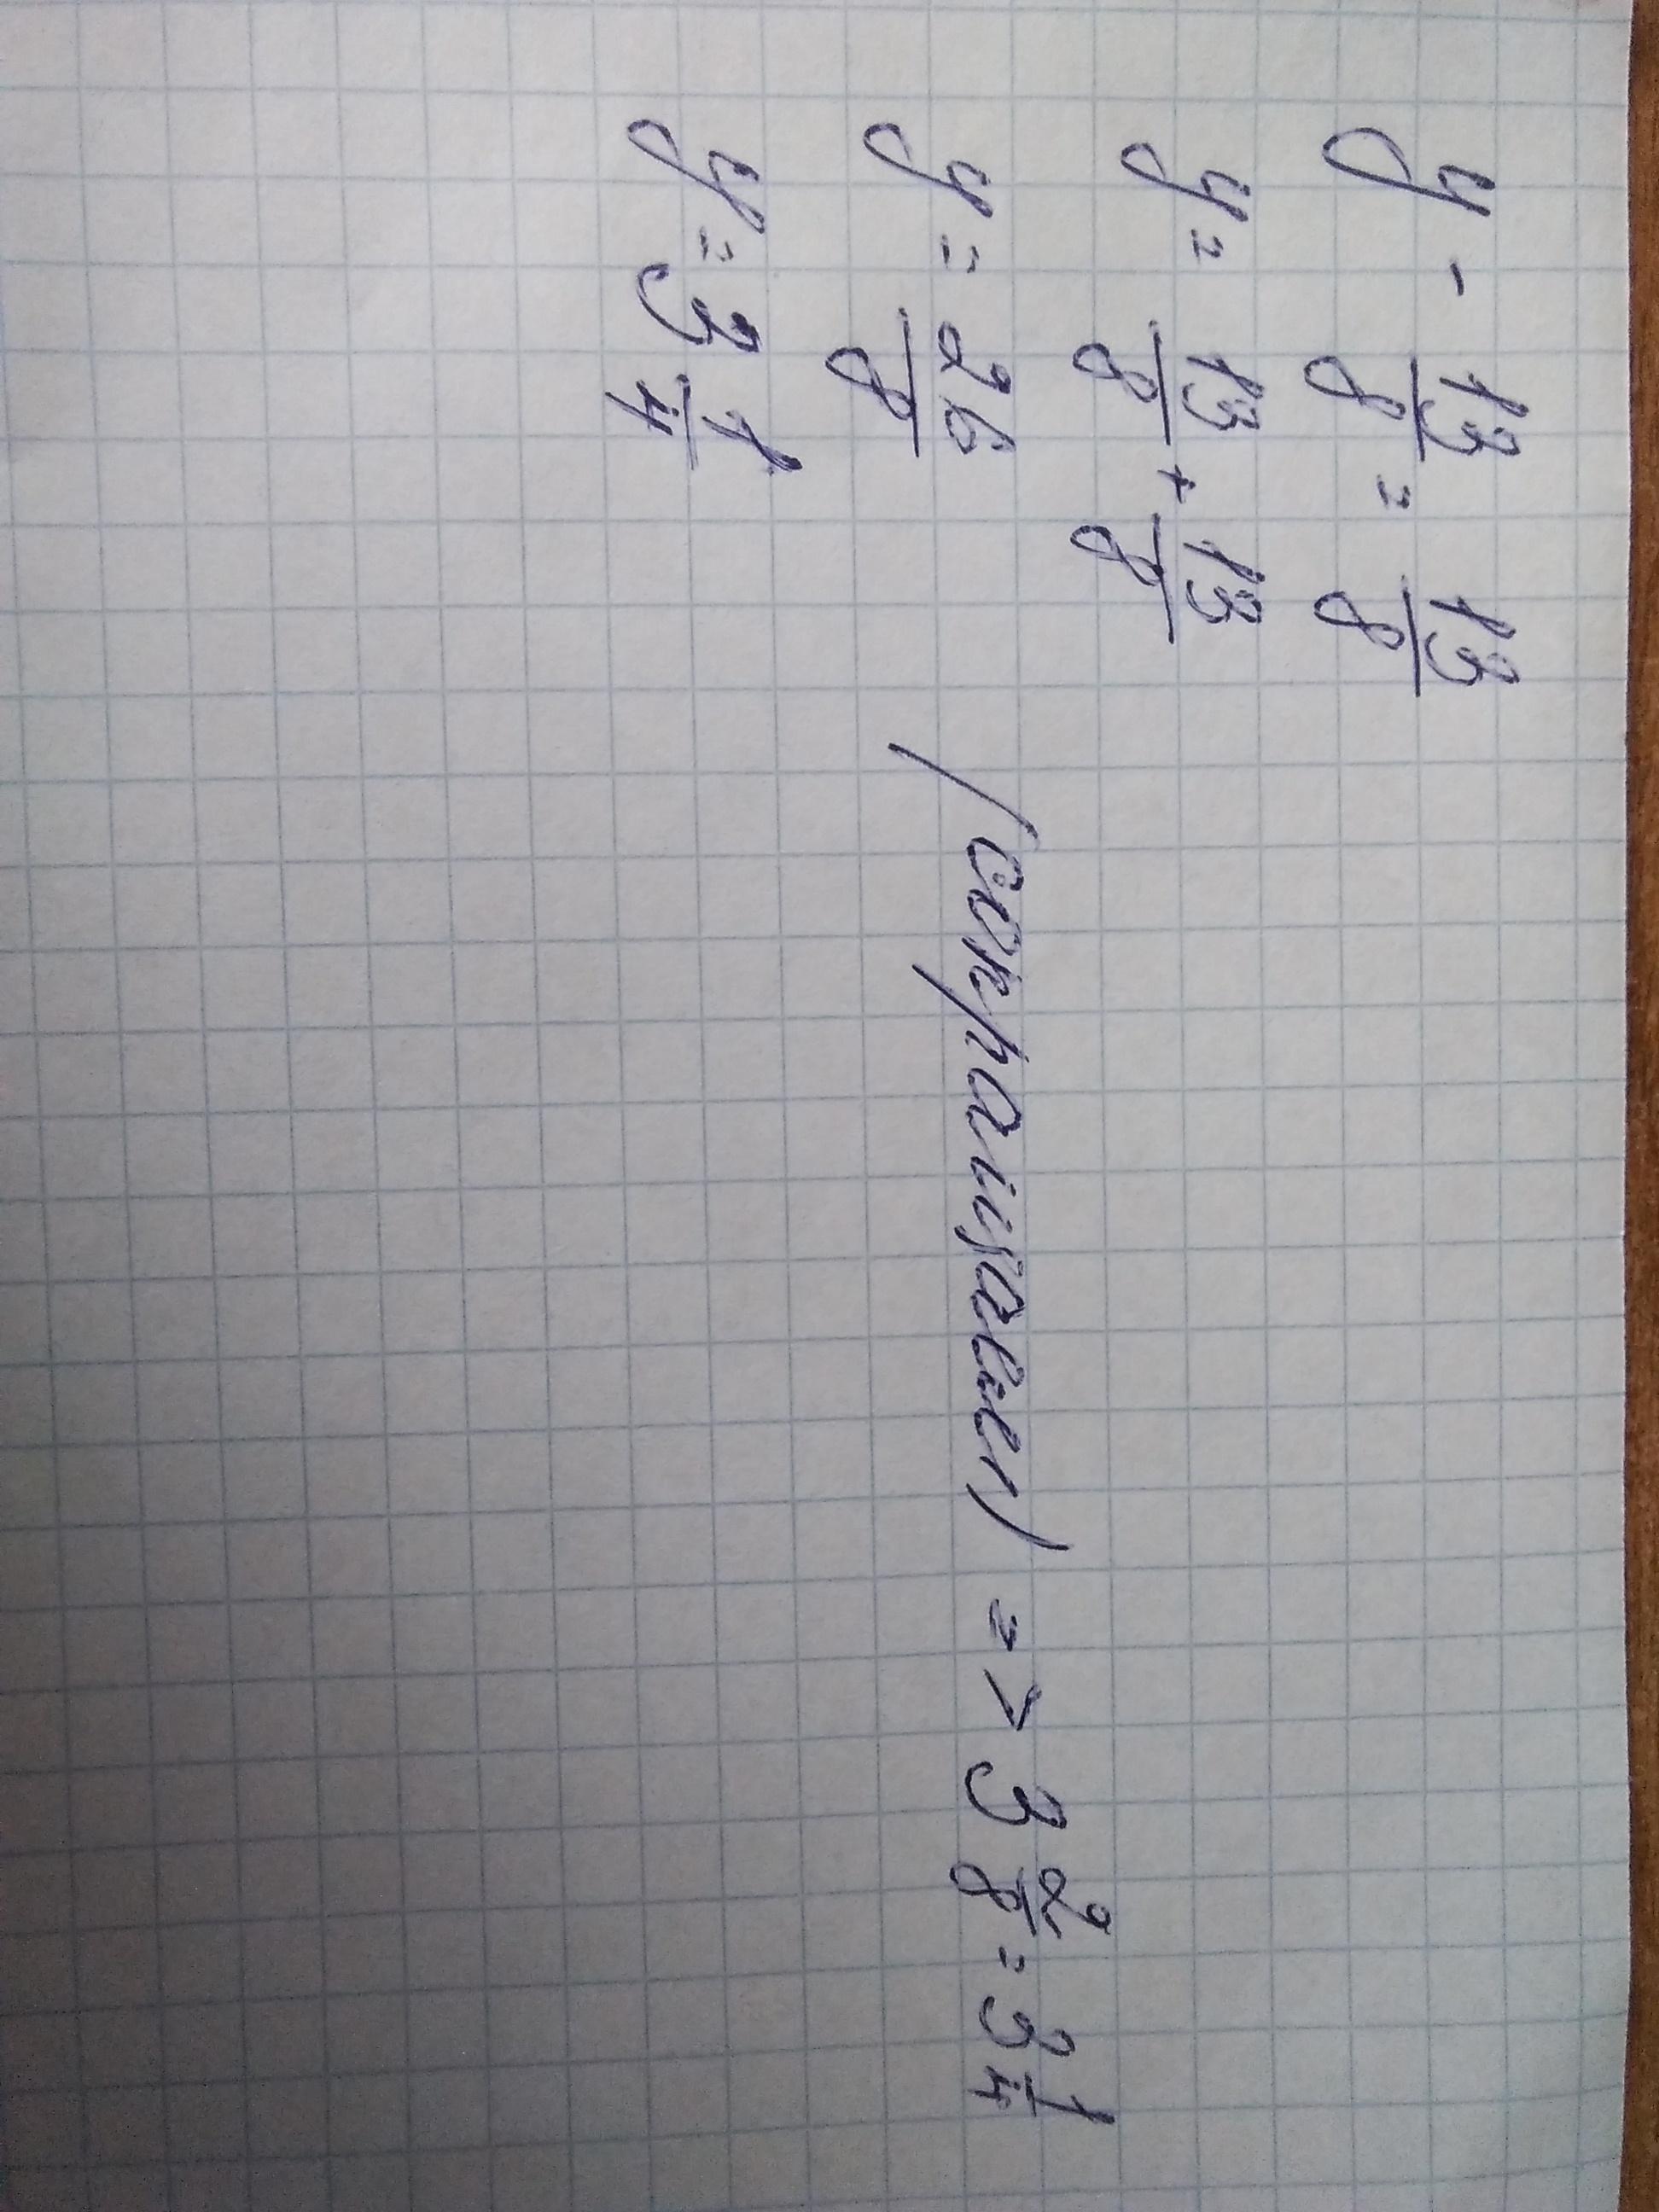 y - 13/8 = 13/8
y = 13/8 + 13/8
y = 26/8 (сокращаем) => 3 2/8 = 3 1/4
y = 3 1/4